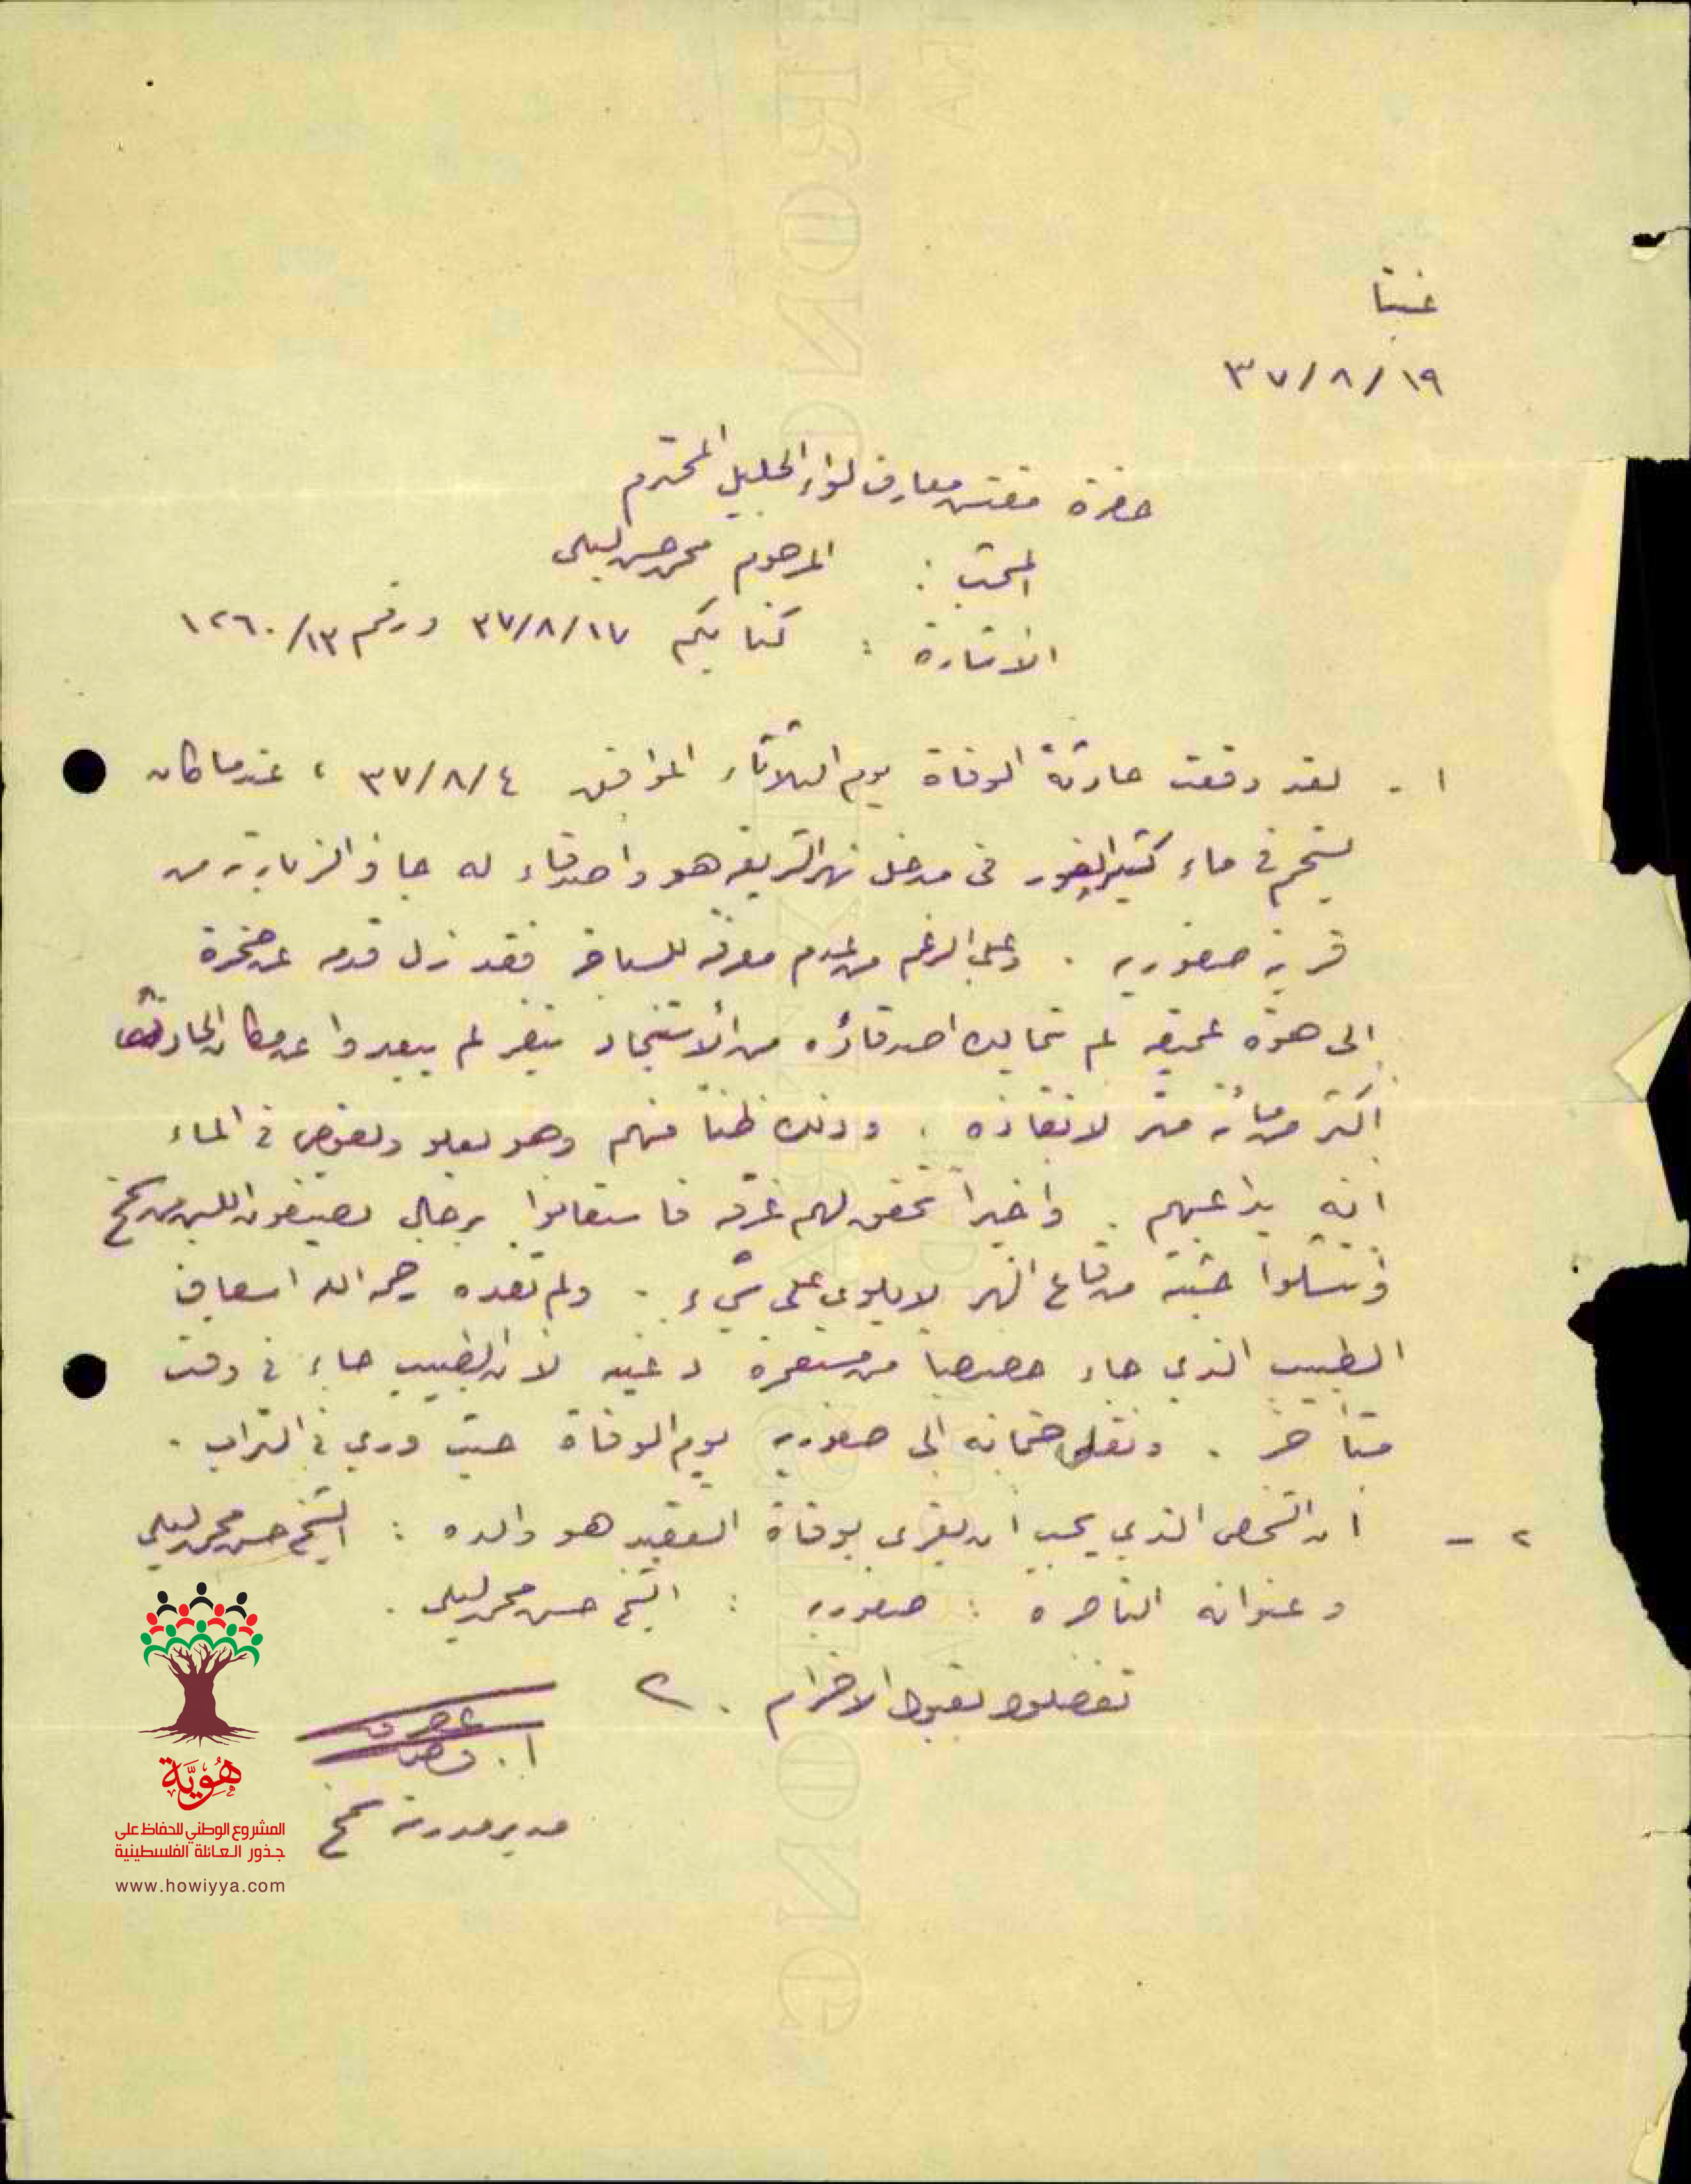 عنبتا
١٩/٨/٣٧
حضرة مفتش معارف لواء الجليل المحترم
المبحث : المرحوم محمد حسن ليلى
الاشارة : كتابكم ٣٧/٨/١٧ ورقم ١٢٦٠/١٣
١ - لقد وقعت حادثة الوفاة يوم الثلاثاء الموافق ٣٧/٨/٤ ، عندما كان
يستحم في ماء كثير الغور في مدخل نهر الشريعة هو واصدقاء له جاؤا لزيارته من
قرية صفوريه . وعلى الرغم من عدم معرفته للسباحة فقد زل قدمه عن صخرة
الى هوّة عميقه لم تمكن اصدقاؤه من الأستنجاد بنفر لم يبعدوا عن مكان الحادثة
اكثر من مائة متر لانقاذه ، وذلك ظناً منهم وهو يعلو ويغوص في الماء
انه يداعبهم . واخيراً تحقق لهم غرقه فاستعانوا برجال من سمخ
فانتشلوا جثته من قاع النهر لا يلوي على شيء . ولم تفده رحمه الله اسعاف
الطبيب الذي جاء خصيصاً من مستعمرة دغنيه لأن الطبيب جاء في وقت
متأخر . ونقل جثمانه الى صفوريه يوم الوفاة حيث وري في التراب .
٢ - ان الشخص الذي يجب ان يعزى بوفاة الفقيد هو والده : الشيخ حسن محمد ليلى
وعنوانه الناصره : صفوريه : الشيخ حسن محمد ليلى .
تفضلوا بقبول الاحترام .
مدير مدرسة سمخ
هُوِيَّة
المشروع الوطني للحفاظ على
جذور العائلة الفلسطينية
www.howiyya.com